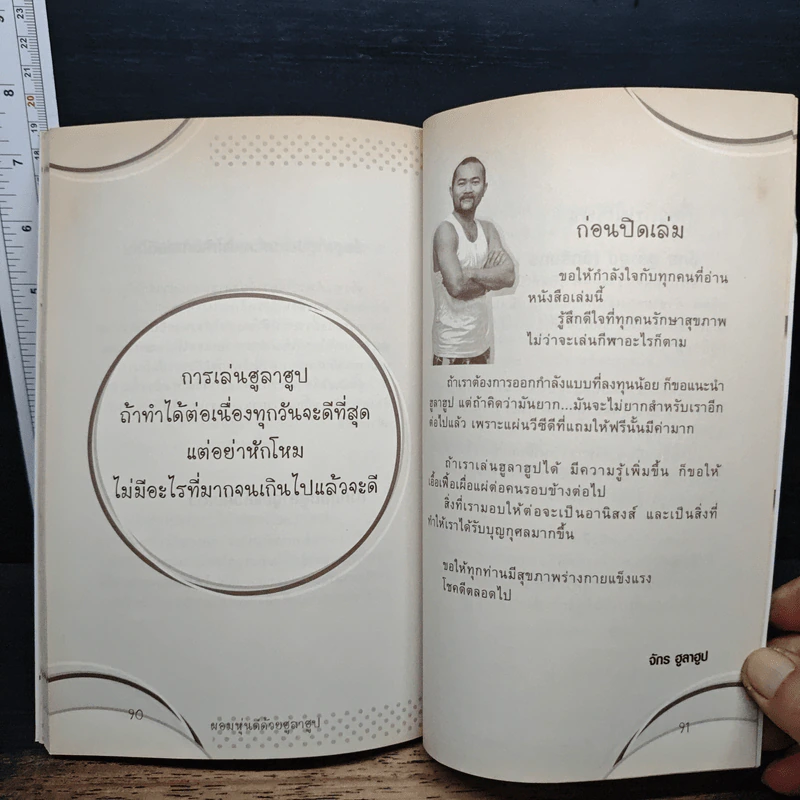 การเล่นฮูลาฮูป
ถ้าทำได้ต่อเนื่องทุกวันจะดีที่สุด
แต่อย่าหักโหม
ไม่มีอะไรที่มากจนเกินไปแล้วจะดี
90
ผอมหุ่นดีด้วยฮูลาฮูป
ก่อนปิดเล่ม
ขอให้กำลังใจกับทุกคนที่อ่าน
หนังสือเล่มนี้
รู้สึกดีใจที่ทุกคนรักษาสุขภาพ
ไม่ว่าจะเล่นกีฬาอะไรก็ตาม
ถ้าเราต้องการออกกำลังแบบที่ลงทุนน้อย ก็ขอแนะนำ
ฮูลาฮูป แต่ถ้าคิดว่ามันยาก...มันจะไม่ยากสำหรับเราอีก
ต่อไปแล้ว เพราะแผ่นวีซีดีที่แถมให้ฟรีนั้นมีค่ามาก
ถ้าเราเล่นฮูลาฮูปได้ มีความรู้เพิ่มขึ้น ก็ขอให้
เอื้อเฟื้อเผื่อแผ่ต่อคนรอบข้างต่อไป
สิ่งที่เรามอบให้ต่อจะเป็นอานิสงส์ และเป็นสิ่งที่
ทำให้เราได้รับบุญกุศลมากขึ้น
ขอให้ทุกท่านมีสุขภาพร่างกายแข็งแรง
โชคดีตลอดไป
จักร ฮูลาฮูป
91
9
8
7
6
23
22
21
20
19
18
17